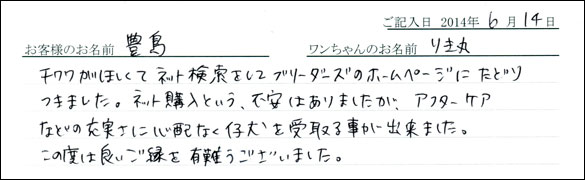 ご記入日 2014年 6月 14日
お客様のお名前 豊島 ワンちゃんのお名前 り圭丸
チワワがほしくて ネット検索をして ブリーダーズのホームページに たどり
つきました。ネット購入という、不安はありましたが、アフターケア
などの充実さに心配なく仔犬を受取る事が出来ました。
この度は良いご縁を有難うございました。